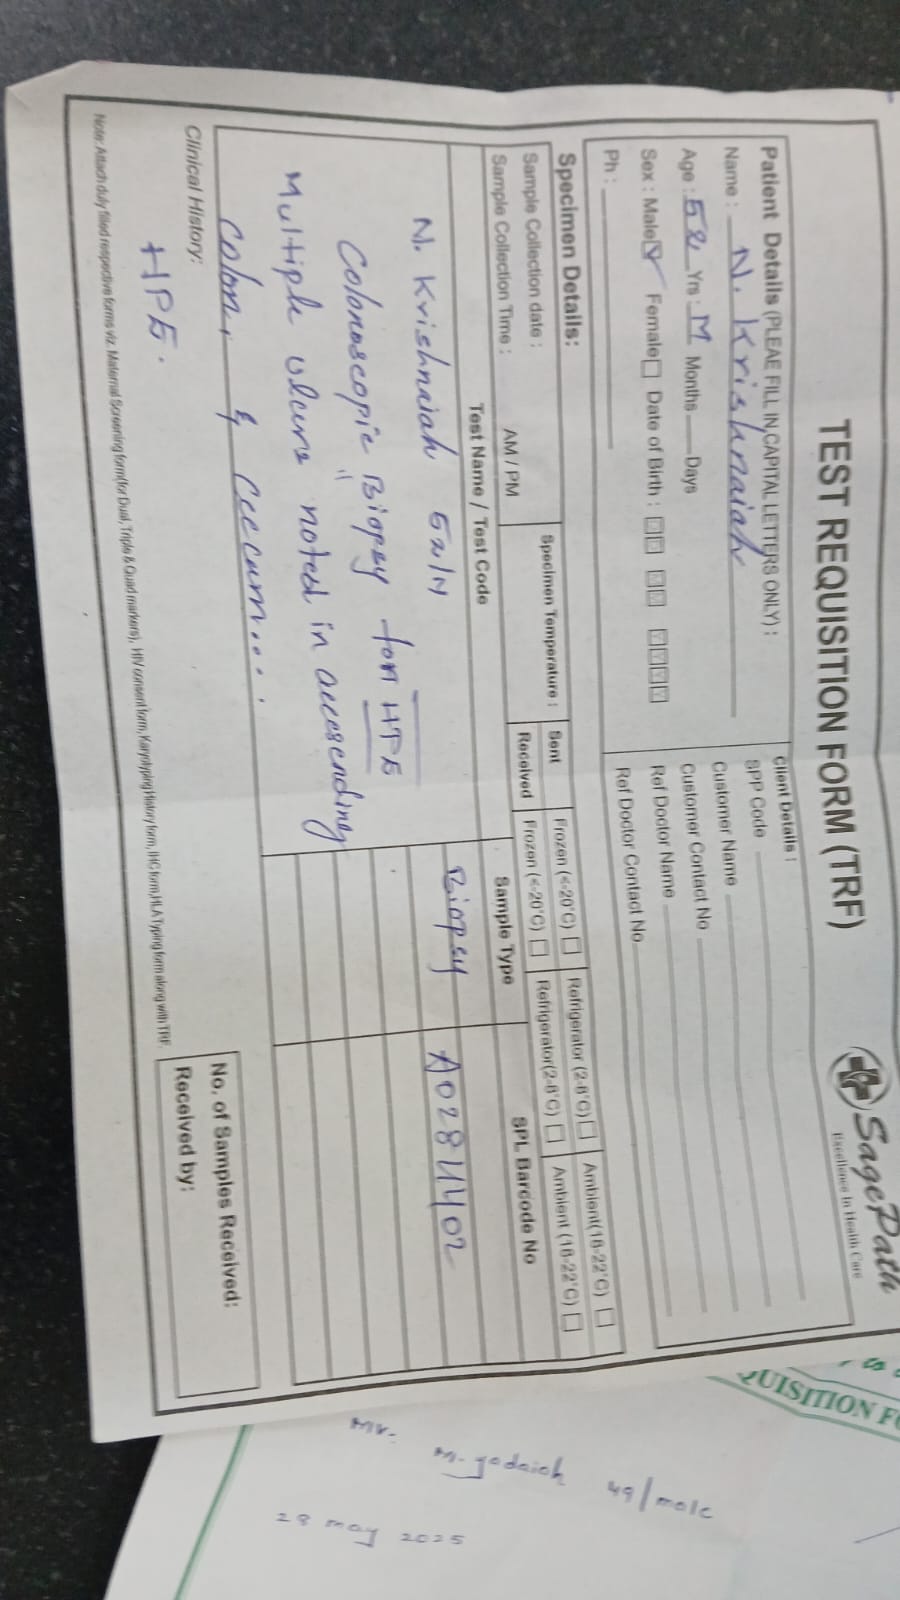 TEST REQUISITION FORM (TRF)
SagePath
Excellence In Health Care
Patient Details (PLEAE FILL IN CAPITAL LETTERS ONLY) :
Name : N. Krishnaiah
Age : 52 Yrs : M Months Days
Sex : Male Female Date of Birth : D D M M Y Y Y Y
Ph :
Client Details :
SPP Code
Customer Name
Customer Contact No
Ref Doctor Name
Ref Doctor Contact No
Specimen Details:
Sample Collection date :
Sample Collection Time : AM / PM
Specimen Temperature :
Sent Frozen (<-20°C) Refrigerator (2-8°C) Ambient(18-22°C)
Received Frozen (<-20°C) Refrigerator(2-8°C) Ambient (18-22°C)
Test Name / Test Code Sample Type SPL Barcode No
N. Krishnaiah 52/M Biopsy A0281402
Colonoscopic Biopsy for HPE
Multiple ulcers noted in accesending
Colon, & Ceecum....
Clinical History:
HPE.
No. of Samples Received:
Received by:
Note: Attach duly filled respective forms viz. Maternal Screening form(for Dual, Triple & Quad markers), HIV consent form, Karyotyping History form, IHC form, HLA Typing form along with TRF.
QUISITION FO
Mr. M. yadaiah 49/male
28 may 2025